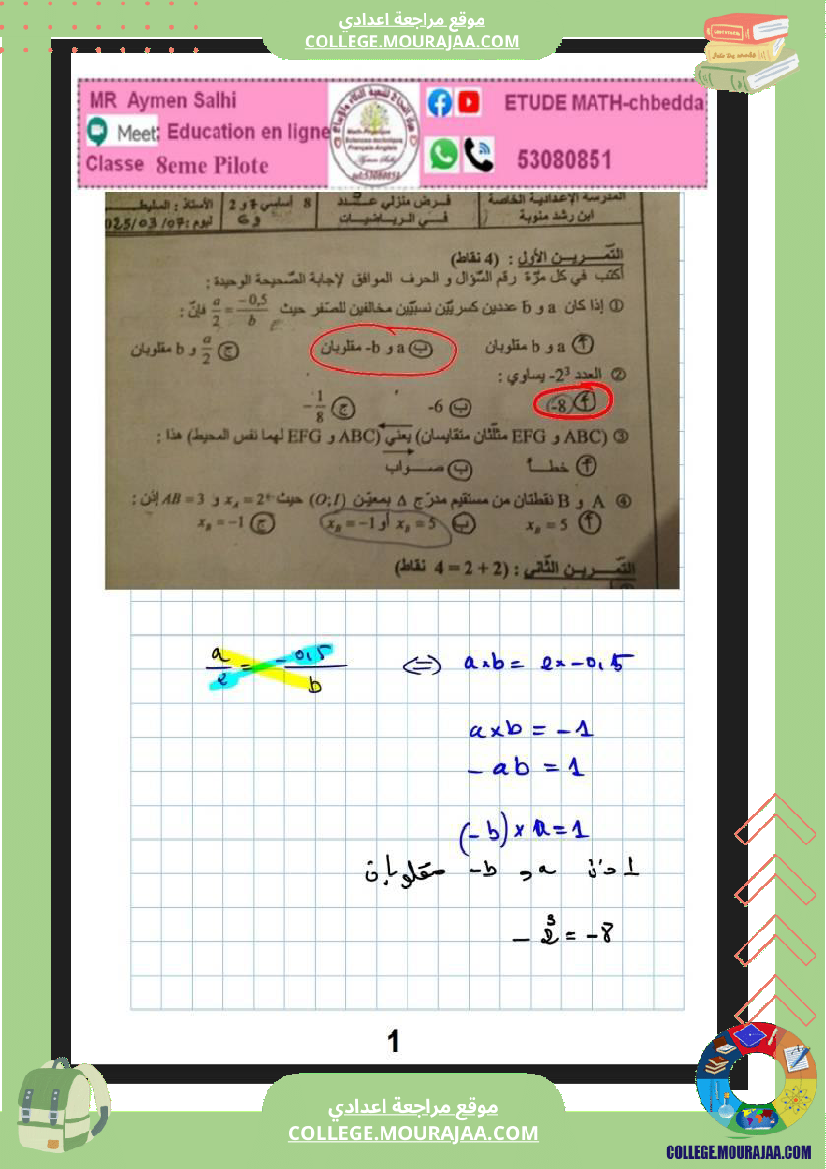 موقع مراجعة اعدادي
COLLEGE.MOURAJAA.COM
MR Aymen Salhi
Meet: Education en ligne
Classe 8eme Pilote
ETUDE MATH-chbedda
53080851
المدرسة الإعدادية الخاصة
ابن رشد منوبة
فرض منزلي عـــدد
فـي الـريـاضـيـات
8 أساسي 7 و 2 و 6
الأستاذ : السليطـ
ليوم: 025/03/07
التّمـــريـــن الأول : (4 نقاط)
أكتب في كل مرّة رقم السّؤال و الحرف الموافق لإجابة الصّحيحة الوحيدة :
① إذا كان a و b عددين كسريّين نسبيّين مخالفين للصّفر حيث a/2 = -0,5/b فإنّ :
أ a و b مقلوبان ب a و -b مقلوبان ج a/2 و b مقلوبان
② العدد -2³ يساوي :
أ -8 ب -6 ج -1/8
③ (ABC و EFG مثلّثان متقايسان) يعني (ABC و EFG لهما نفس المحيط) هذا :
أ خطــأ ب صــواب
④ A و B نقطتان من مستقيم مدرّج Δ بمعيّن (O;I) حيث xA = 2 و AB = 3 إذن :
أ xB = 5 ب xB = 5 أو xB = -1 ج xB = -1
التّمـــريـــن الثّاني : (2 + 2 = 4 نقاط)
a/2 = -0,5/b ⇔ a×b = 2×-0,5
a×b = -1
-ab = 1
(-b)×a=1
اذن a و -b مقلوبان
-2³ = -8
1
موقع مراجعة اعدادي
COLLEGE.MOURAJAA.COM
COLLEGE.MOURAJAA.COM